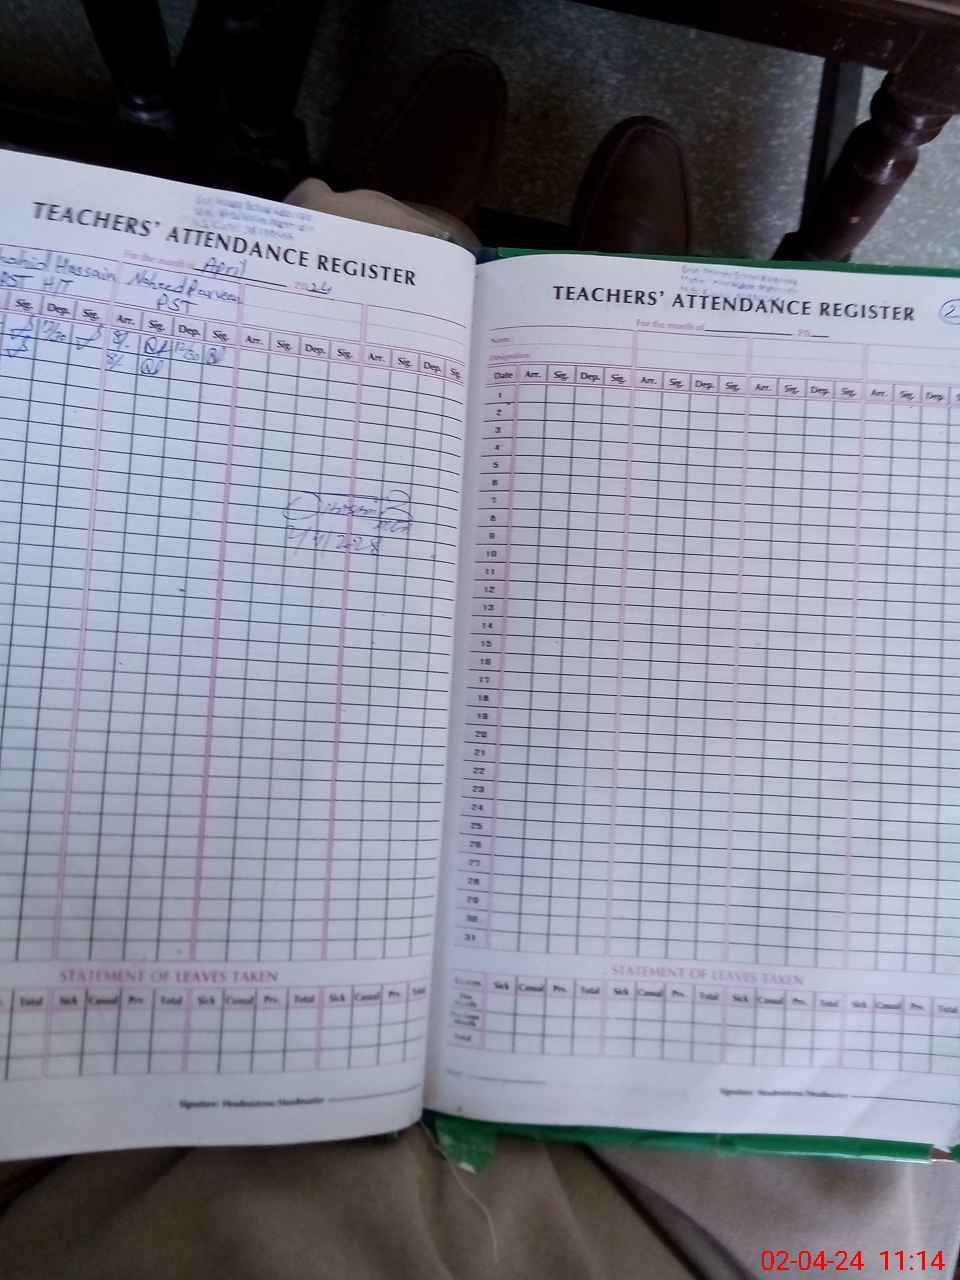 TEACHERS' ATTENDANCE REGISTER
For the month of April 2024
Hassain Naheed Parveen
PST H/T PST
Sig. Dep. Sig. Arr. Sig. Dep. Sig. Arr. Sig. Dep. Sig. Arr. Sig. Dep. Sig.
12/30 8/. 12/30
8/.
STATEMENT OF LEAVES TAKEN
Total Sick Casual Prv. Total Sick Casual Prv. Total Sick Casual Prv. Total
Signature: Headmistress/Headmaster
TEACHERS' ATTENDANCE REGISTER
2
For the month of 20
Name:
Designation:
Date Arr. Sig. Dep. Sig. Arr. Sig. Dep. Sig. Arr. Sig. Dep. Sig. Arr. Sig. Dep. S
1
2
3
4
5
6
7
8
9
10
11
12
13
14
15
16
17
18
19
20
21
22
23
24
25
26
27
28
29
30
31
STATEMENT OF LEAVES TAKEN
Leaves Sick Casual Prv. Total Sick Casual Prv. Total Sick Casual Prv. Total Sick Casual Prv. Total
This Month
Previous Month
Total
Signature: Headmistress/Headmaster
02-04-24 11:14